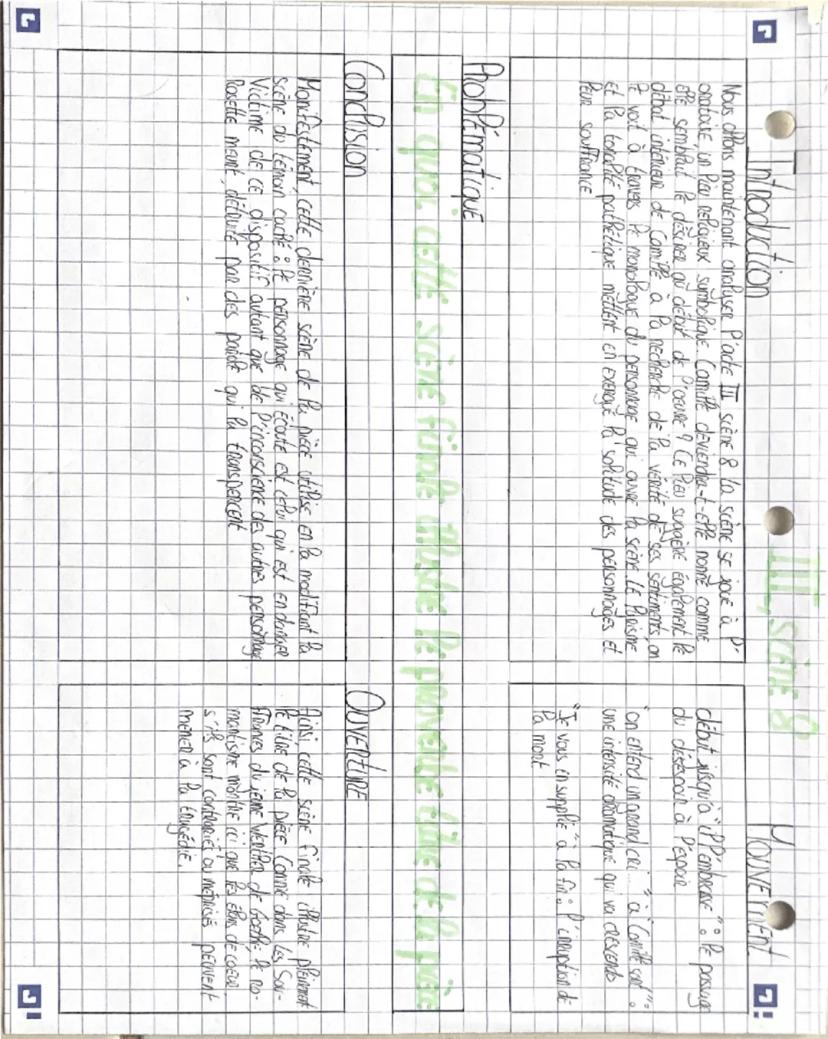 III, scène 8
Introduction
Nous allons maintenant analyser l'acte III scène 8 la scène se joue à l'-
oratoire, un lieu religieux symbolique Camille deviendra-t-elle nonne comme
elle semblait le désirer au début de l'oeuvre ? Ce lieu suggère également le
débat intérieur de Camille à la recherche de la vérité de ses sentiments on
le voit à travers le monologue du personnage qui ouvre la scène. Le lyrisme
et la tonalité pathétique mettent en exergue la solitude des personnages et
leur souffrance
Mouvement
début jusqu'à "il l'embrasse" : le passage
du désespoir à l'espoir
"on entend un grand cri..." à "Camille sort" :
une intensité dramatique qui va crescendo
"Je vous en supplie" à la fin : l'irruption de
la mort
Problématique
En quoi cette scène finale illustre le proverbe titre de la pièce
Conclusion
Manifestement, cette dernière scène de la pièce utilise en la modifiant la
scène du témoin caché : le personnage qui écoute est celui qui est en danger
Victime de ce dispositif autant que de l'inconscience des autres personnage
Rosette meurt, détruite par des parole qui la transpercent
Ouverture
Ainsi, cette scène finale illustre pleinement
le titre de la pièce Comme dans les Sou-
ffrances du jeune Werther de Goethe le ro-
mantisme montre ici que les élans de coeur
s'ils sont contrariés ou méprisés peuvent
mener à la tragédie.